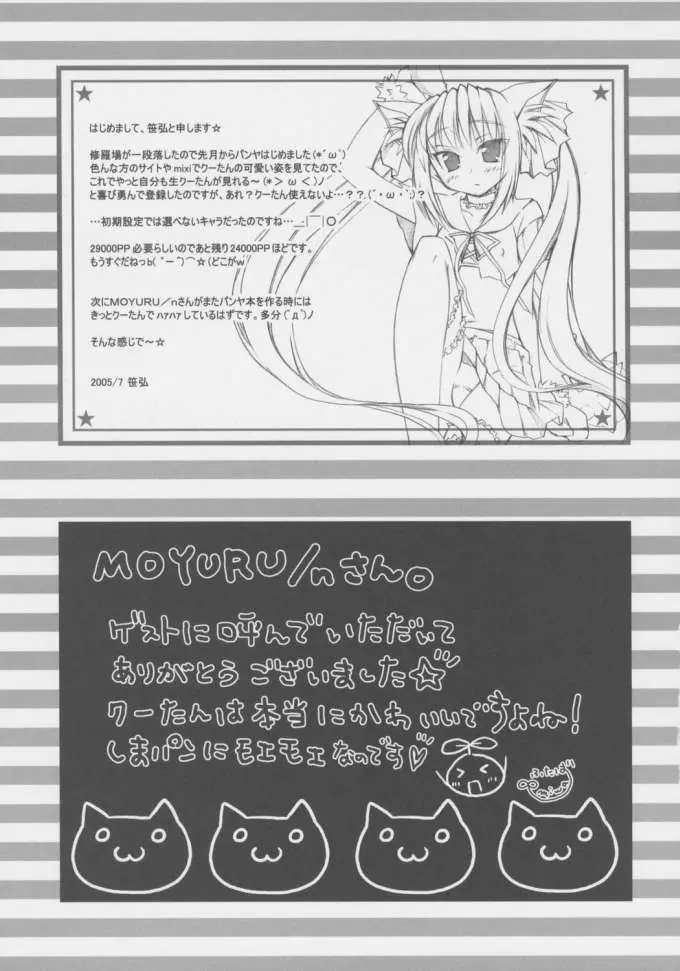 はじめまして、笹弘と申します☆
修羅場が一段落したので先月からパンヤはじめました(*´ω`)
色んな方のサイトやmixiでくーたんの可愛い姿を見てたので、
これでやっと自分も生くーたんが見れる～(*＞ω＜)ノ
と喜び勇んで登録したのですが、あれ？クーたん使えないよ…？？(´・ω・`;)？
…初期設定では選べないキャラだったのですね…＿|￣|○
29000PP必要らしいのであと残り24000PPほどです。
もうすぐだねっb(ﾟーﾟ)⌒☆(どこがｗ
次にMOYURU／nさんがまたパンヤ本を作る時には
きっとくーたんでハァハァしているはずです。多分(ﾟдﾟ)ノ
そんな感じで～☆
2005/7 笹弘
MOYURU/nさん。
ゲストに呼んでいただいて
ありがとうございました☆
クーたんは本当にかわいいですよね！
しまパンにモエモエなのです♡
ふたば